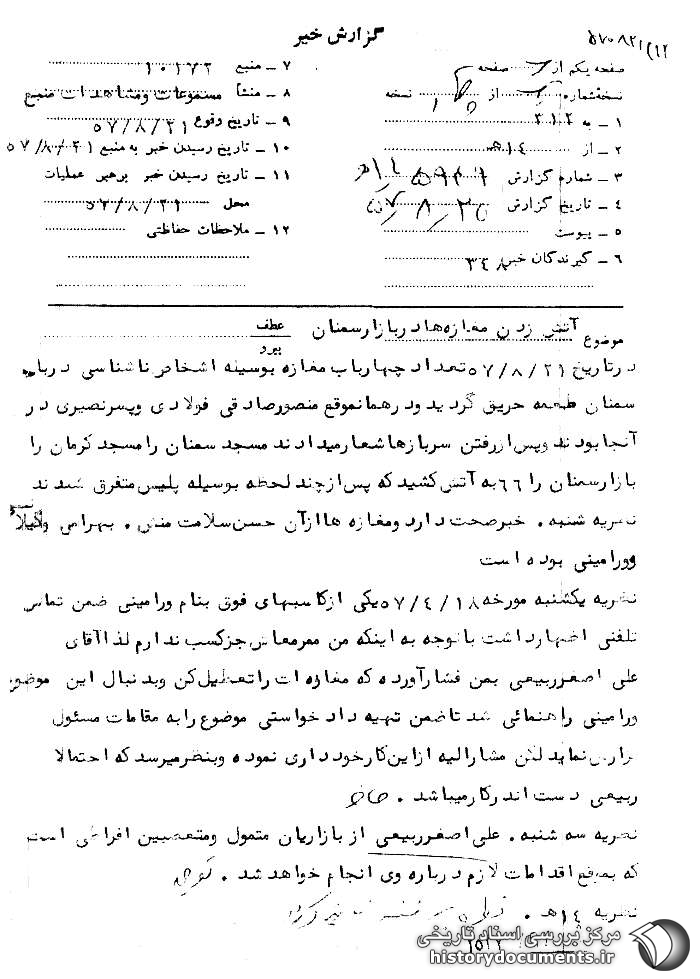 گزارش خبر
۵۷۰۸۲۱۱۱۲
صفحه یکم از صفحه
نسخه شماره از نسخه
۱ ـ به ۳۱۲
۲ ـ از ۱۴ه
۳ ـ شماره گزارش
۴ ـ تاریخ گزارش
۵ ـ پیوست
۶ ـ گیرندگان خبر ۳۴۸
۷ ـ منبع ۱۰۱۷۲
۸ ـ منشأ مسموعات ومشاهدات منبع
۹ ـ تاریخ وقوع ۵۷/۸/۲۱
۱۰ ـ تاریخ رسیدن خبر به منبع ۵۷/۸/۲۱
۱۱ ـ تاریخ رسیدن خبر برهبر عملیات
محل ۵۷/۸/۲۱
۱۲ ـ ملاحظات حفاظتی
موضوع آتش زدن مغازه‌ها در بازار سمنان
عطف
پیرو
در تاریخ ۵۷/۸/۲۱ تعداد چهارباب مغازه بوسیله اشخاص ناشناسی در بازار
سمنان طعمه حریق گردید ودرهمانموقع منصورصادقی فولادی وپسرنصیری در
آنجا بودند وپس ازرفتن سربازها شعارمیدادند مسجد سمنان را مسجد کرمان را
بازارسمنان را ۶۶ به آتش کشید که پس ازچند لحظه بوسیله پلیس متفرق شدند
نظریه شنبه . خبرصحت دارد ومغازه ها ازآن حسن سلامت منش . بهرامی و
وورامینی بوده است
نظریه یکشنبه مورخه ۵۷/۴/۱۸ یکی ازکاسبهای فوق بنام ورامینی ضمن تماس
تلفنی اضهارداشت با توجه به اینکه من ممرمعاش جزکسب ندارم لذا آقای
علی اصغرربیعی بمن فشارآورده که مغازه ات را تعطیل کن وبدنبال این موضوع
ورامینی راهنمائی شد تا ضمن تهیه دادخواستی موضوع را به مقامات مسئول
گزارش نماید لکن مشارالیه ازاین کارخودداری نموده وبنظرمیرسد که احتمالا
ربیعی دست اندرکارمیباشد .
نظریه سه شنبه . علی اصغرربیعی از بازاریان متمول ومتعصبین افراطی است
که بموقع اقدامات لازم درباره وی انجام خواهد شد .
نظریه ۱۴ه .
مرکز بررسی اسناد تاریخی
historydocuments.ir